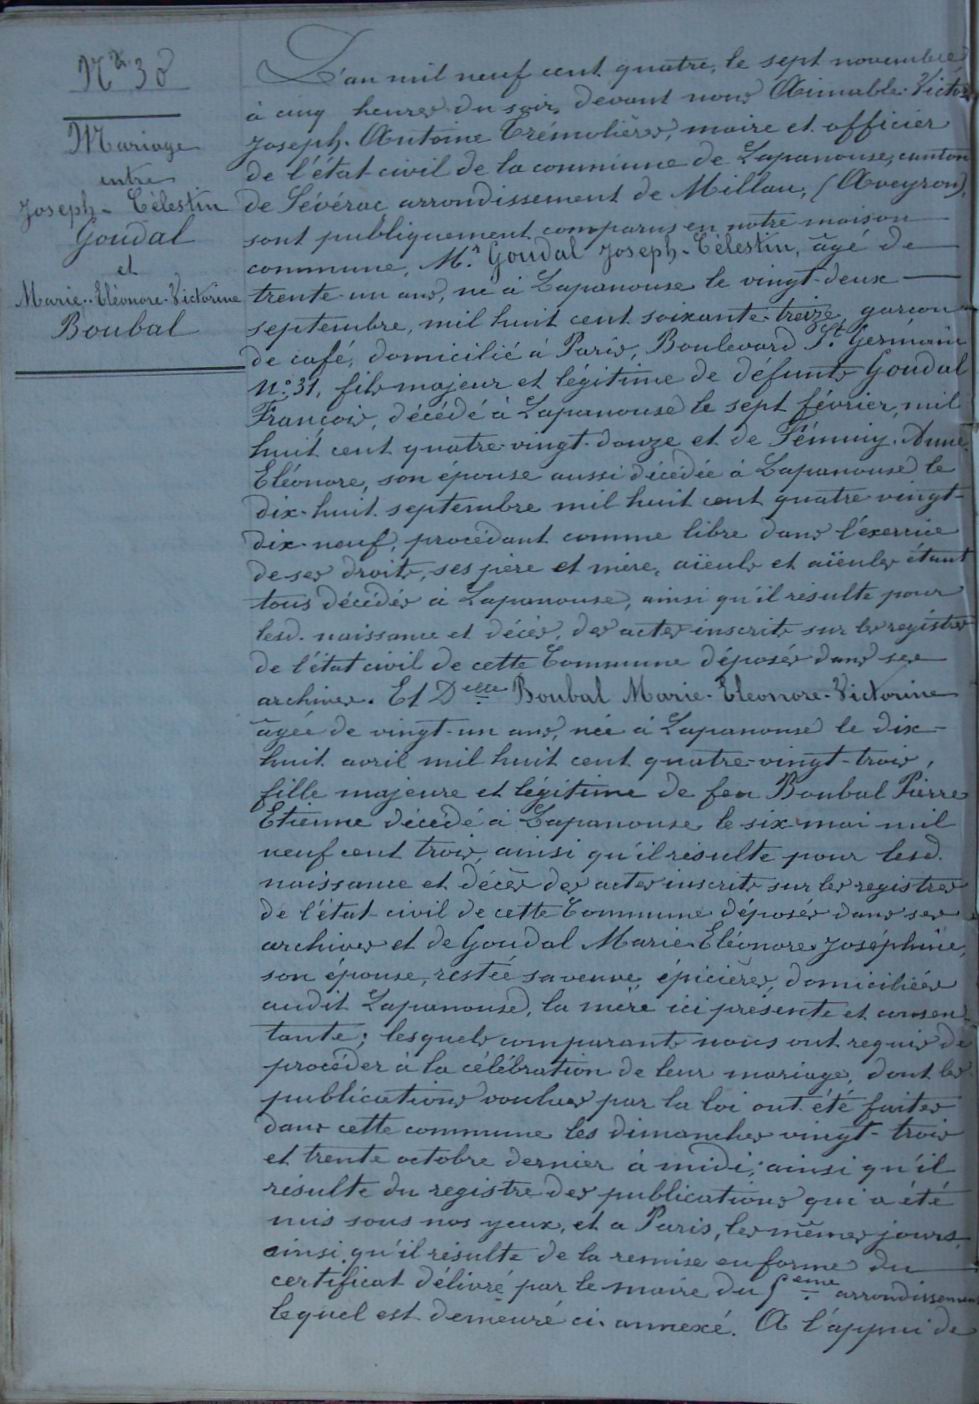 Nº 38
Mariage
entre
Joseph-Célestin
Goudal
et
Marie-Eléonore-Victorine
Boubal
L'an mil neuf cent quatre, le sept novembre
à cinq heures du soir, devant nous Aimable-Victor
Joseph-Antoine Trémolières, maire et officier
de l'état civil de la commune de Lapanouse, canton
de Sévérac arrondissement de Millau, (Aveyron),
sont publiquement comparus en notre maison
commune, Mr Goudal Joseph-Célestin, âgé de
trente-un ans, né à Lapanouse le vingt-deux
septembre, mil huit cent soixante-treize, garçon
de café, domicilié à Paris, Boulevard St Germain
Nº 31, fils majeur et légitime de défunts Goudal
François, décédé à Lapanouse le sept février, mil
huit cent quatre-vingt-douze et de Anne
Eléonore, son épouse aussi décédée à Lapanouse le
dix-huit septembre mil huit cent quatre-vingt-
dix-neuf, procédant comme libre dans l'exercice
de ses droits, ses père et mère, aïeuls et aïeules étant
tous décédés à Lapanouse, ainsi qu'il résulte pour
lesd. naissance et décès, des actes inscrits sur les registres
de l'état civil de cette Commune déposés dans ses
archives. Et Delle Boubal Marie-Eléonore-Victorine
âgée de vingt-un ans, née à Lapanouse le dix-
huit avril mil huit cent quatre-vingt-trois,
fille majeure et légitime de feu Boubal Pierre
Etienne décédé à Lapanouse le six mai mil
neuf cent trois, ainsi qu'il résulte pour lesd.
naissance et décès des actes inscrits sur les registres
de l'état civil de cette Commune déposés dans ses
archives et de Goudal Marie-Eléonore-Joséphine,
son épouse, restée sa veuve, épicière, domiciliées
audit Lapanouse, la mère ici présente et consen-
tante; lesquels comparants nous ont requis de
procéder à la célébration de leur mariage, dont les
publications voulues par la loi ont été faites
dans cette commune les dimanches vingt-trois
et trente octobre dernier à midi, ainsi qu'il
résulte du registre des publications qui a été
mis sous nos yeux, et a Paris, les mêmes jours
ainsi qu'il résulte de la remise en forme du
certificat délivré par le maire du 5eme arrondissement
lequel est demeuré ci-annexé. A l'appui de